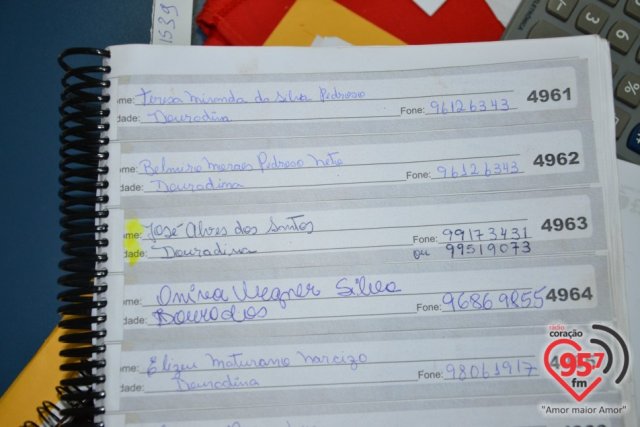 1539
ome: Teresa Miranda da Silva Pedroso
dade: Douradina Fone: 96126343 4961
ome: Belmiro Moraes Pedroso Neto
dade: Douradina Fone: 96126343 4962
ome: José Alves dos Santos
dade: Douradina Fone: 99173431 4963
ou 99519073
ome: Wegner Silva
dade: Dourados Fone: 96869255 4964
ome: Elizeu Maturano Narcizo
dade: Douradina Fone: 98061917
rádio
coração
95,7
fm
"Amor maior Amor"